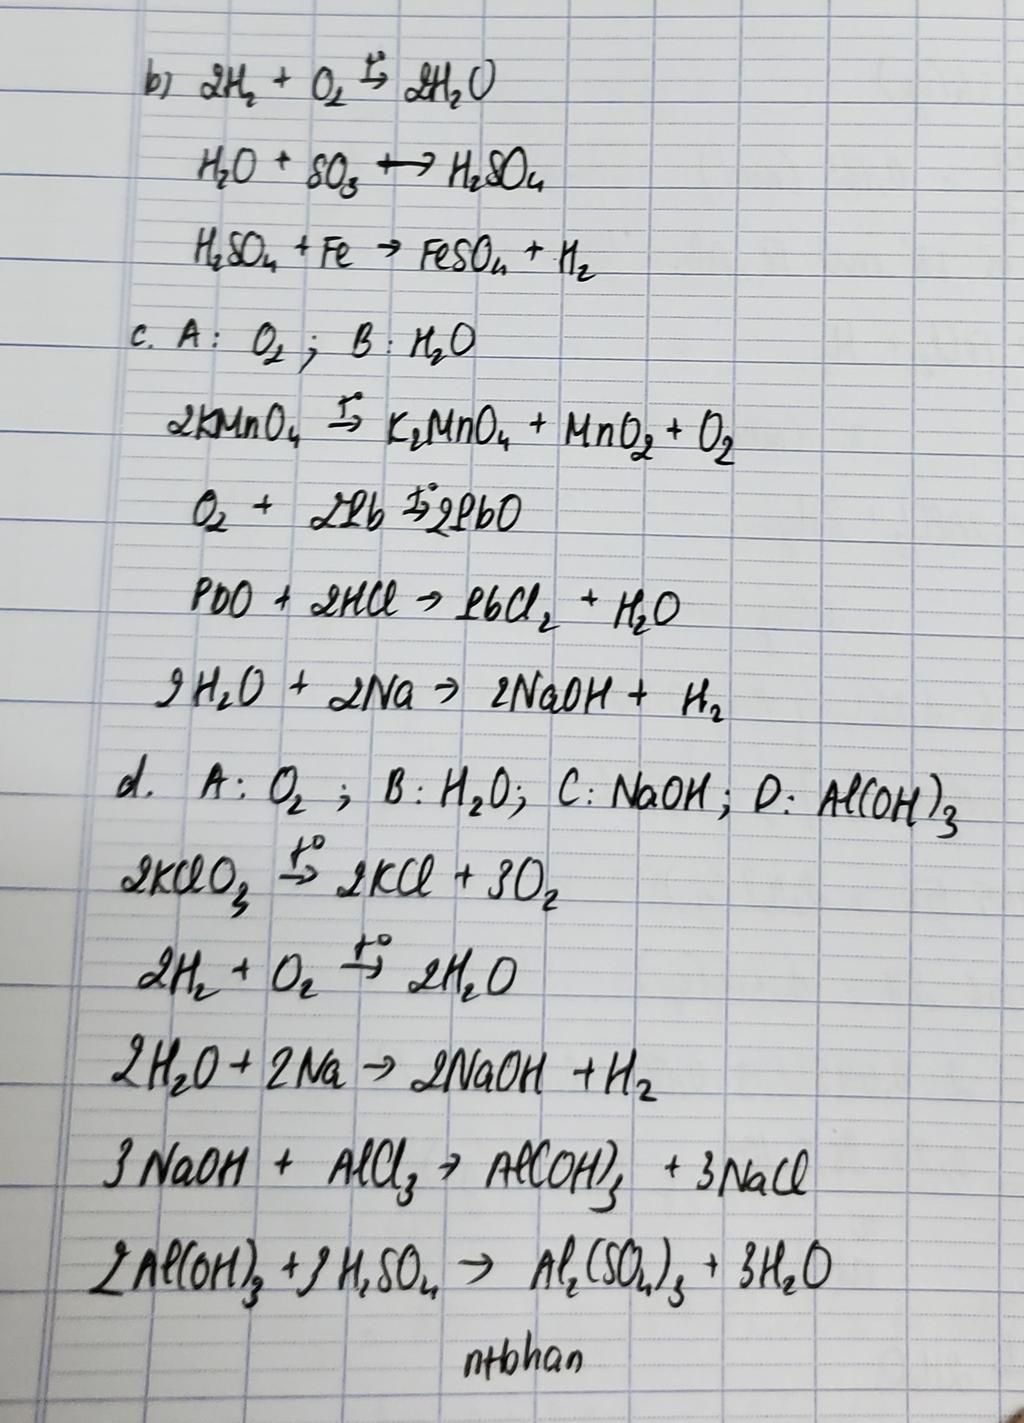 b) 2H₂ + O₂ t°→ 2H₂O
H₂O + SO₃ ⟼ H₂SO₄
H₂SO₄ + Fe → FeSO₄ + H₂
c. A: O₂ ; B: H₂O
2KMnO₄ t°→ K₂MnO₄ + MnO₂ + O₂
O₂ + 2Pb t°→ 2PbO
PbO + 2HCl → PbCl₂ + H₂O
2H₂O + 2Na → 2NaOH + H₂
d. A: O₂ ; B: H₂O; C: NaOH; D: Al(OH)₃
2KClO₃ t°→ 2KCl + 3O₂
2H₂ + O₂ t°→ 2H₂O
2H₂O + 2Na → 2NaOH + H₂
3NaOH + AlCl₃ → Al(OH)₃ + 3NaCl
2Al(OH)₃ + 3H₂SO₄ → Al₂(SO₄)₃ + 3H₂O
ntbhan